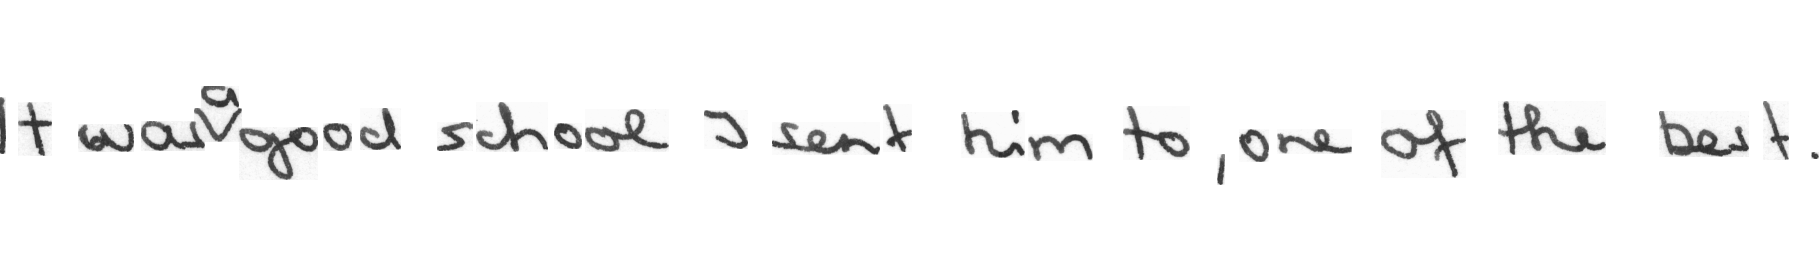 It was a good school I sent him to, one of the best.